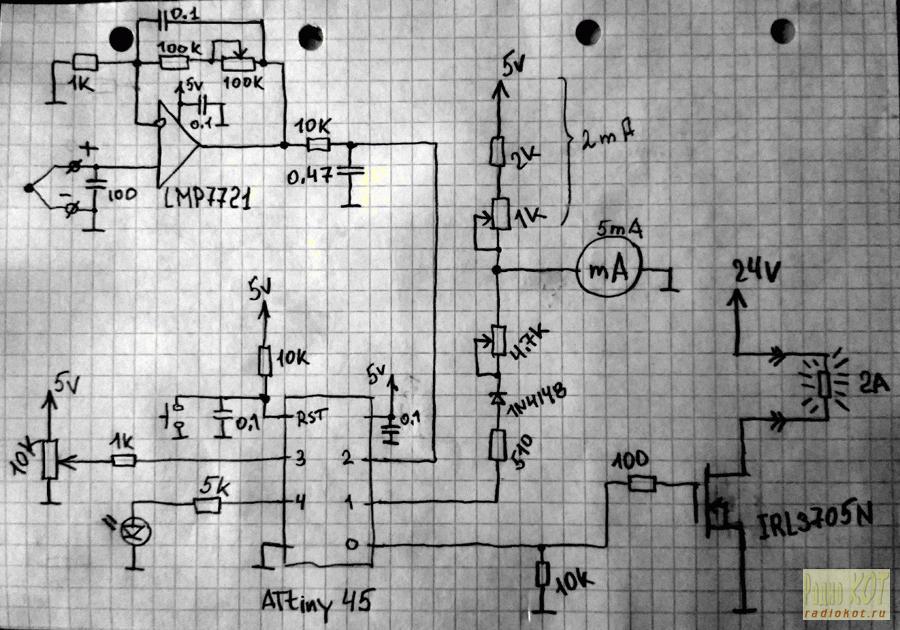 0.1
100K
100K
1K
5V
0.1
+
-
100
LMP7721
10K
0.47
5V
2K
1K
2mA
5mA
mA
24V
2A
4.7K
1N4148
510
5V
10K
5V
0.1
5V
0.1
RST
10K
1K
3
2
5K
4
1
0
ATtiny 45
10K
100
IRL3705N
Радио КОТ
radiokot.ru